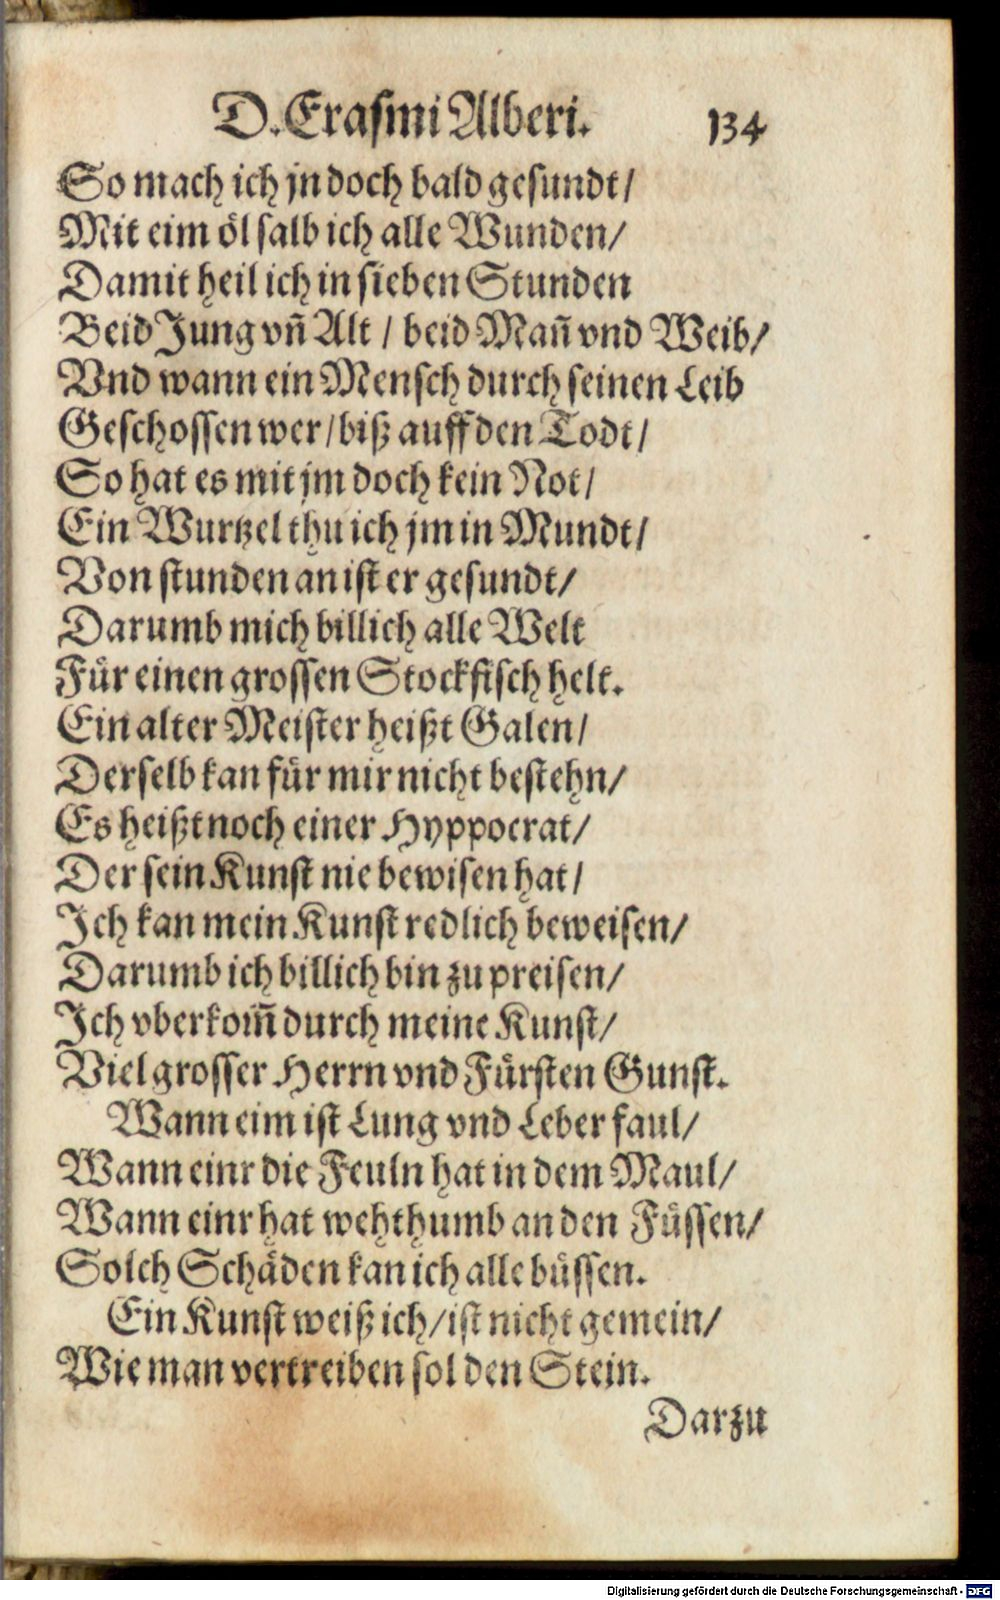 D. Erasmi Alberi. 134
So mach ich jn doch bald gesundt/
Mit eim öl salb ich alle Wunden/
Damit heil ich in sieben Stunden
Beid Jung vñ Alt / beid Mañ vnd Weib/
Vnd wann ein Mensch durch seinen Leib
Geschossen wer/biß auff den Todt/
So hat es mit jm doch kein Not/
Ein Wurtzel thu ich jm in Mundt/
Von stunden an ist er gesundt/
Darumb mich billich alle Welt
Für einen grossen Stockfisch helt.
Ein alter Meister heißt Galen/
Derselb kan für mir nicht bestehn/
Es heißt noch einer Hyppocrat/
Der sein Kunst nie bewisen hat/
Ich kan mein Kunst redlich beweisen/
Darumb ich billich bin zu preisen/
Ich vberkom̃ durch meine Kunst/
Viel grosser Herrn vnd Fürsten Gunst.
Wann eim ist Lung vnd Leber faul/
Wann einr die Feuln hat in dem Maul/
Wann einr hat wehthumb an den Füssen/
Solch Schäden kan ich alle büssen.
Ein Kunst weiß ich/ist nicht gemein/
Wie man vertreiben sol den Stein.
Darzu
Digitalisierung gefördert durch die Deutsche Forschungsgemeinschaft - DFG